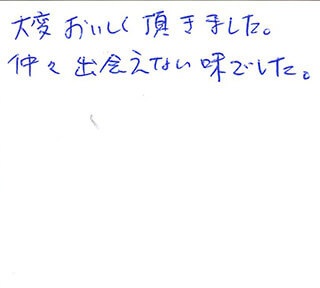 大変おいしく頂きました。
仲々出会えない味でした。